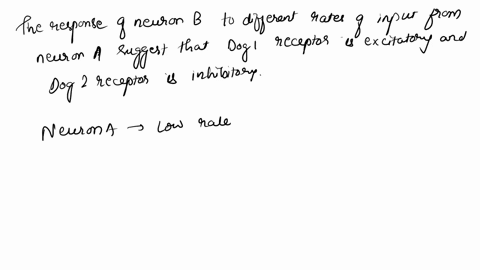 The response of neuron B to different rates of input from
neuron A suggest that Dog1 receptor is excitatory and
Dog 2 receptor is inhibitory.
Neuron A → Low rate